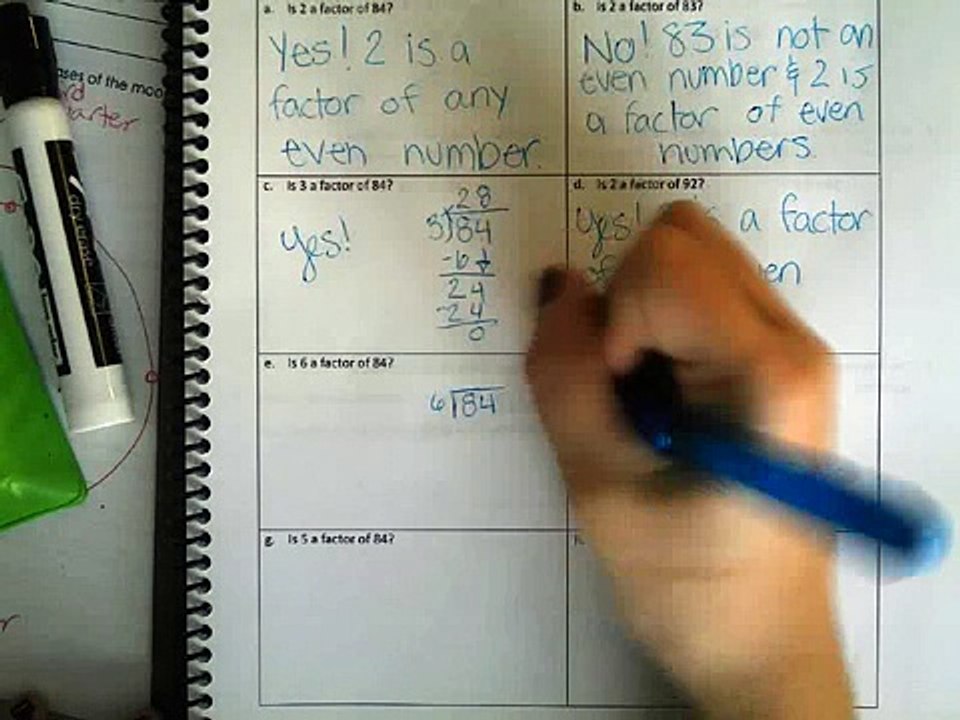 a. Is 2 a factor of 84?
Yes! 2 is a
factor of any
even number.
b. Is 2 a factor of 83?
No! 83 is not an
even number & 2 is
a factor of even
numbers.
c. Is 3 a factor of 84?
yes!
28
3)84
-6
24
-24
0
d. Is 2 a factor of 92?
yes! a factor
e. Is 6 a factor of 84?
6)84
g. Is 5 a factor of 84?
ases of the moo
rd
arter